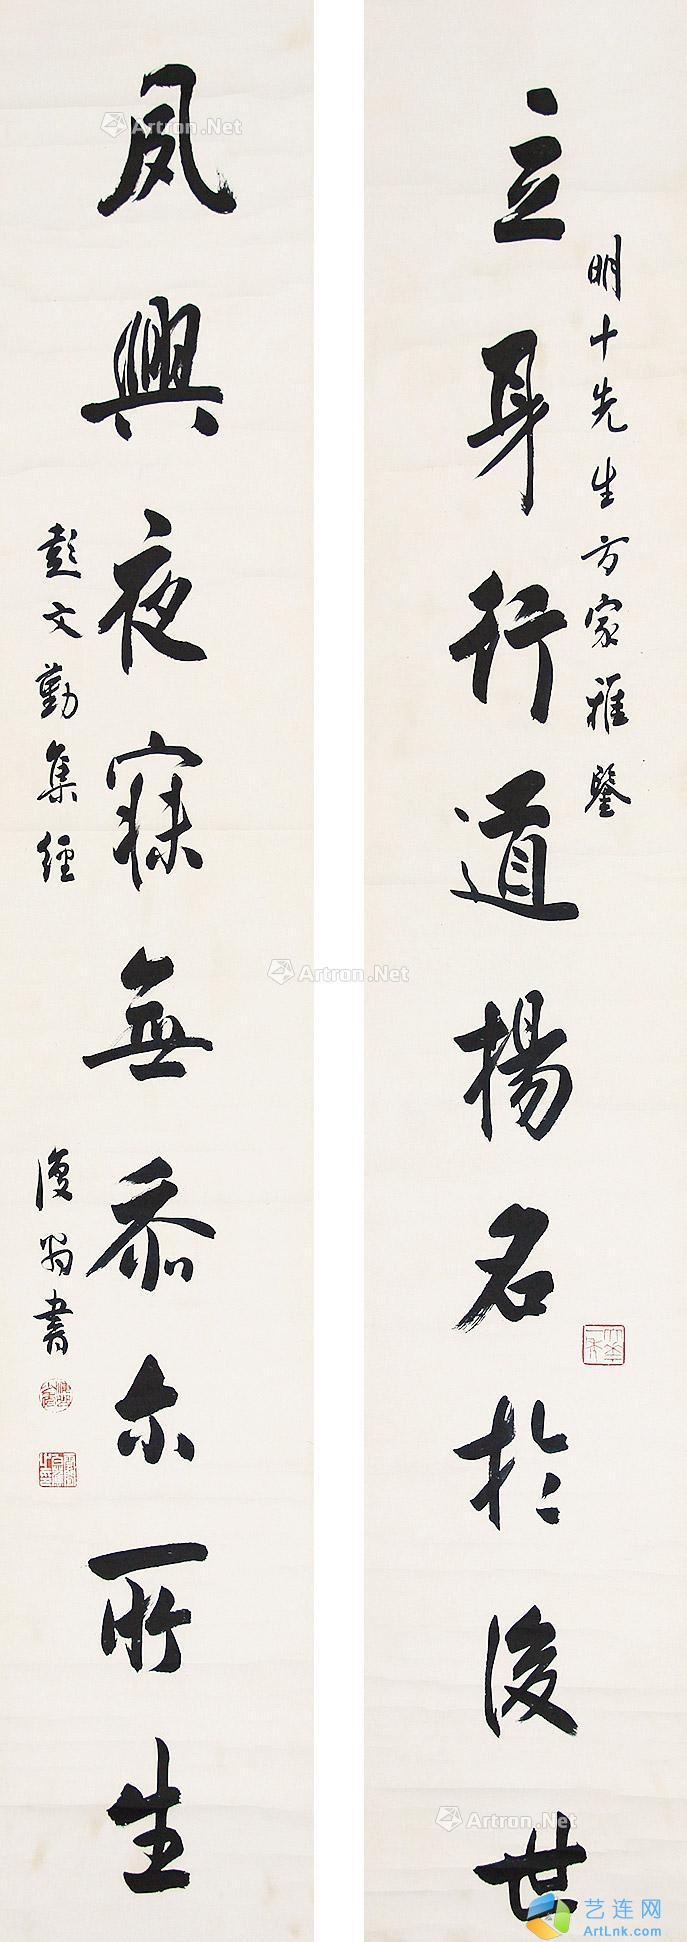 立身行道揚名於後世
明十先生方家雅鑒
夙興夜寐無忝尔所生
彭文勤集經
復翁書
Artron.Net
Artron.Net
Artron.Net
Artron.Net
Artron.Net
艺连网
ArtLnk.com